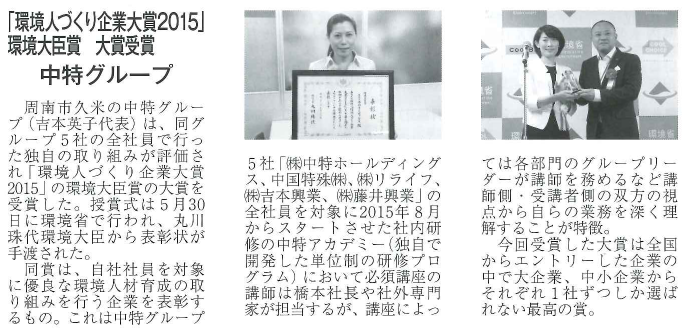 「環境人づくり企業大賞2015」
環境大臣賞　大賞受賞
中特グループ
　周南市久米の中特グルー
プ（吉本英子代表）は、同グ
ループ５社の全社員で行っ
た独自の取り組みが評価さ
れ「環境人づくり企業大賞
2015」の環境大臣賞の大賞を
受賞した。授賞式は５月30
日に環境省で行われ、丸川
珠代環境大臣から表彰状が
手渡された。
　同賞は、自社社員を対象
に優良な環境人材育成の取
り組みを行う企業を表彰す
るもの。これは中特グループ
５社「㈱中特ホールディング
ス、中国特殊㈱、㈱リライフ、
㈱吉本興業、㈱藤井興業」の
全社員を対象に2015年８月
からスタートさせた社内研
修の中特アカデミー（独自で
開発した単位制の研修プロ
グラム）において必須講座の
講師は橋本社長や社外専門
家が担当するが、講座によっ
ては各部門のグループリー
ダーが講師を務めるなど講
師側・受講者側の双方の視
点から自らの業務を深く理
解することが特徴。
　今回受賞した大賞は全国
からエントリーした企業の
中で大企業、中小企業から
それぞれ１社ずつしか選ば
れない最高の賞。
表彰状
環境省